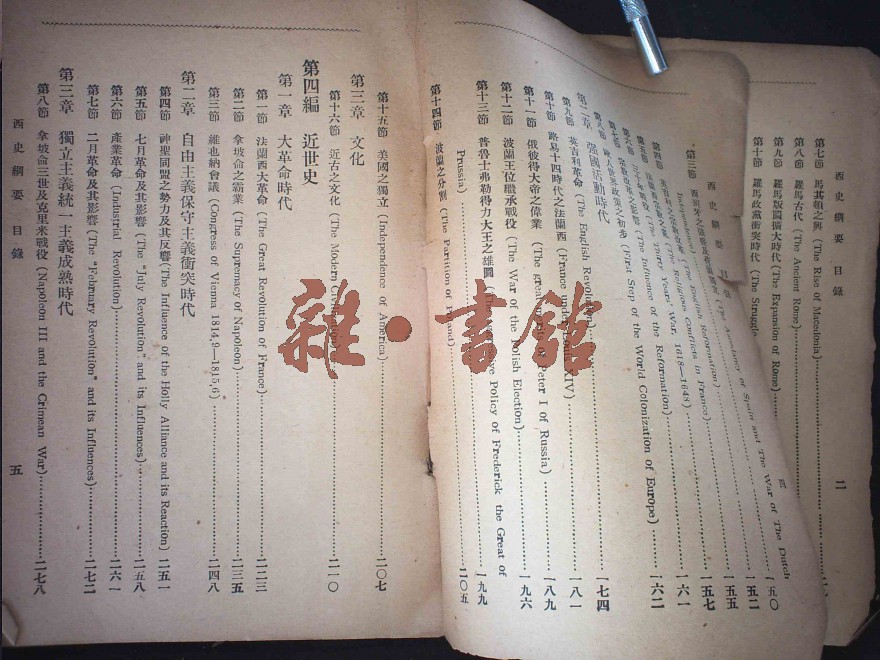 第七節 馬其頓之興 (The Rise of Macedonia)
第八節 羅馬古代 (The Ancient Rome)
第九節 羅馬版圖擴大時代 (The Expansion of Rome)
第十節 羅馬政黨衝突時代 (The Struggle
西史綱要 目錄
西史綱要
四
第三節 (The Ascendancy of Spain and The War of The Dutch Independence)
一五〇
(The English Reformation)
一五二
(The Religious Conflicts in France)
一五五
(The Thirty Years' War, 1618—1648)
一五七
(The Influence of the Reformation)
一六一
(First Step of the World Colonization of Europe)
一六二
第二章 強國活動時代
第八節 英吉利革命 (The English Revolution)
一七四
第九節 路易十四時代之法蘭西 (France under Louis XIV)
一八一
第十一節 俄彼得大帝之偉業 (The great work of Peter I of Russia)
一八九
第十二節 波蘭王位繼承戰役 (The War of the Polish Election)
一九六
第十三節 普魯士弗勒得力大王之雄圖 Policy of Frederick the Great of Prussia)
一九九
第十四節 波蘭之分割 (The Partition of Poland)
二〇五
第十五節 美國之獨立 (Independence of America)
二〇七
第三章 文化
第十六節 近古之文化 (The Modern Civilization)
二一〇
第四編 近世史
第一章 大革命時代
第一節 法蘭西大革命 (The Great Revolution of France)
二一三
第二節 拿坡侖之霸業 (The Supremacy of Napoleon)
二三五
第三節 維也納會議 (Congress of Vienna 1814,9—1815,6)
二四八
第二章 自由主義保守主義衝突時代
第四節 神聖同盟之勢力及其反響 (The Influence of the Holly Alliance and its Reaction)
二五一
第五節 七月革命及其影響 (The "July Revolution" and its Influences)
二五八
第六節 產業革命 (Industrial Revolution)
二六一
第七節 二月革命及其影響 (The "February Revolution" and its Influences)
二七二
第三章 獨立主義統一主義成熟時代
第八節 拿坡侖三世及克里米戰役 (Napoleon III and the Crimean War)
二七八
西史綱要 目錄
五
雜·書館